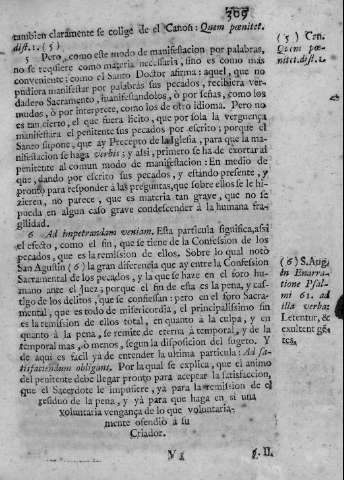 309
tambien claramente se collige de el Canon: Quem pœnitet.
dist. 1. (5)
5 Pero, como este modo de manifestacion por palabras,
no se requiere como materia necessaria, sino es como mas
conveniente: como el Santo Doctor afirma: aquel, que no
pudiera manifestar por palabras sus pecados, recibiera Ver-
dadero Sacramento, manifestandolos, ò por señas, como los
mudos, ò por interprete, como los de otro idioma. Pero no
es tan cierto, el que fuera licito, que por sola la verguença
manifestara el penitente sus pecados por escrito; porque el
Santo supone, que ay Precepto de la Iglesia, para que la ma-
nifestacion se haga verbis; y assi, primero se ha de exortar al
penitente al comun modo de manifestacion: En medio de
que, dando por escrito sus pecados, y estando presente, y
pronto para responder à las preguntas, que sobre ellos se le hi-
zieren, no parece, que es materia tan grave, que no se
pueda en algun caso grave condescender à la humana fra-
gilidad.
6 Ad impetrandam veniam. Esta particula significa, assi
el efecto, como el fin, que se tiene de la Confession de los
pecados, que es la remission de ellos. Sobre lo qual notò
San Agustin (6) la gran diferencia que ay entre la Confession
Sacramental de los pecados, y la que se haze en el foro hu-
mano ante el Juez; porque el fin de esta es la pena, y cas-
tigo de los delitos, que se confiessan: pero en el foro Sacra-
mental, que es todo de misericordia, el principalissimo fin
es la remission de ellos total, en quanto à la culpa, y en
quanto à la pena, se remite de eterna à temporal, y de la
temporal mas, ò menos, segun la disposicion del sugeto. Y
de aqui es facil yà de entender la ultima particula: Ad sa-
tisfaciendum obligans. Por la qual se explica, que el animo
del penitente debe llegar pronto para aceptar la satisfaccion,
que el Sacerdote le impusiere, yà para la remission de el
residuo de la pena, y yà para que haga en si una
voluntaria vengança de lo que voluntaria-
mente ofendiò a su
Criador.
§. II.
(5) Can.
Quem pœ-
nitet. dist. 1.
(6) S. Aug.
in Enarra-
tione Psal-
mi 61. ad
illa verba:
Letentur, &
exultent gē-
tes.